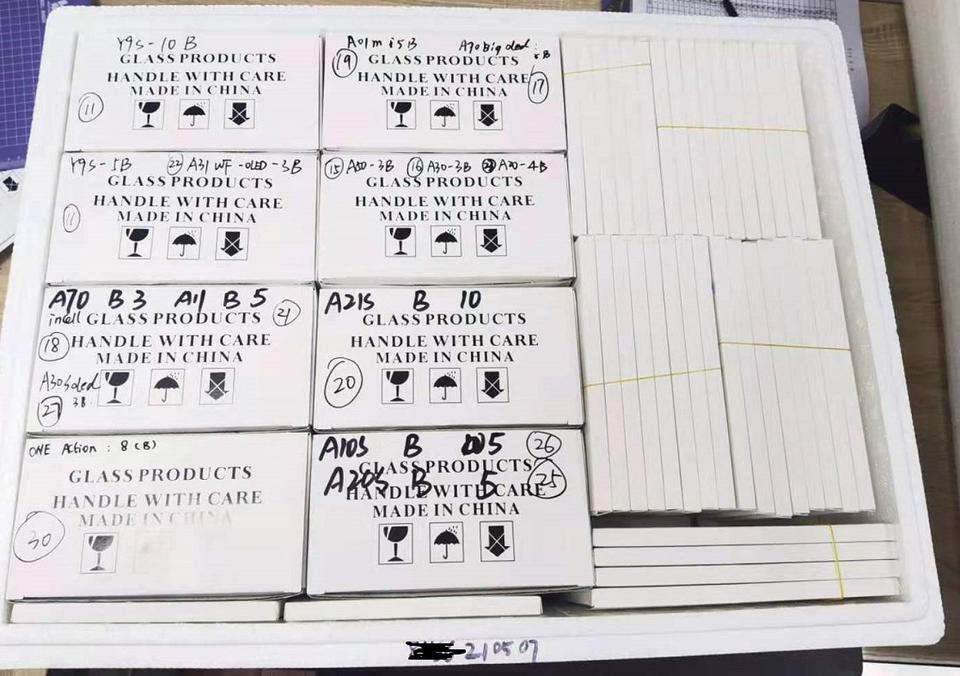 Y9S-10 B
GLASS PRODUCTS
HANDLE WITH CARE
MADE IN CHINA
11
A01 m i5B A70 Big oled :
19 GLASS PRODUCTS
HANDLE WITH CARE 17
MADE IN CHINA
Y9S-5B 22 A31 WF-OLED-3B
GLASS PRODUCTS
HANDLE WITH CARE
11 MADE IN CHINA
15 A50-3B 16 A30-3B A20-4B
GLASS PRODUCTS
HANDLE WITH CARE
MADE IN CHINA
A70 B 3 A11 B 5
incell GLASS PRODUCTS 21
18 HANDLE WITH CARE
MADE IN CHINA
A30S oled
27 3B
A21S B 10
GLASS PRODUCTS
HANDLE WITH CARE
MADE IN CHINA
20
ONE Action : 8 (B)
GLASS PRODUCTS
HANDLE WITH CARE
MADE IN CHINA
30
A10S B 5 26
GLASS PRODUCTS
A20S B 5 25
HANDLE WITH CARE
MADE IN CHINA
210507